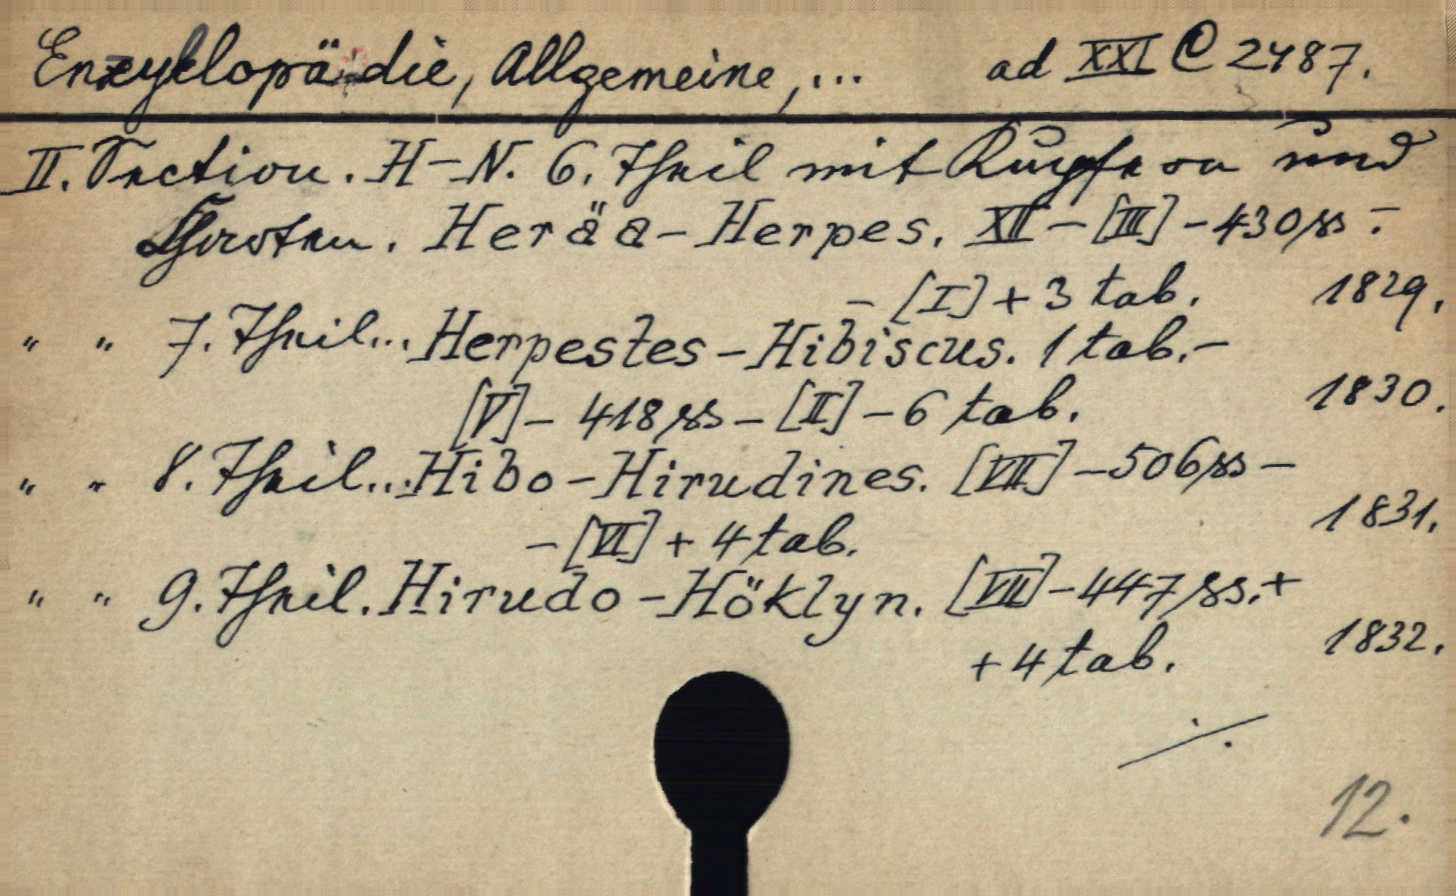 Enzyklopädie, Allgemeine, ... ad XXI C 2487.
II. Section. H–N. 6. Theil mit Kupfern und
Charten. Heräa – Herpes. XII – [III] – 430 ss –
– [I] + 3 tab. 1829.
" " 7. Theil... Herpestes – Hibiscus. 1 tab. –
[V] – 418 ss – [II] – 6 tab. 1830.
" " 8. Theil... Hibo – Hirudines. [VII] – 506 ss –
– [VI] + 4 tab. 1831.
" " 9. Theil. Hirudo – Höklyn. [VII] – 447 ss. +
+ 4 tab. 1832.
./.
12.